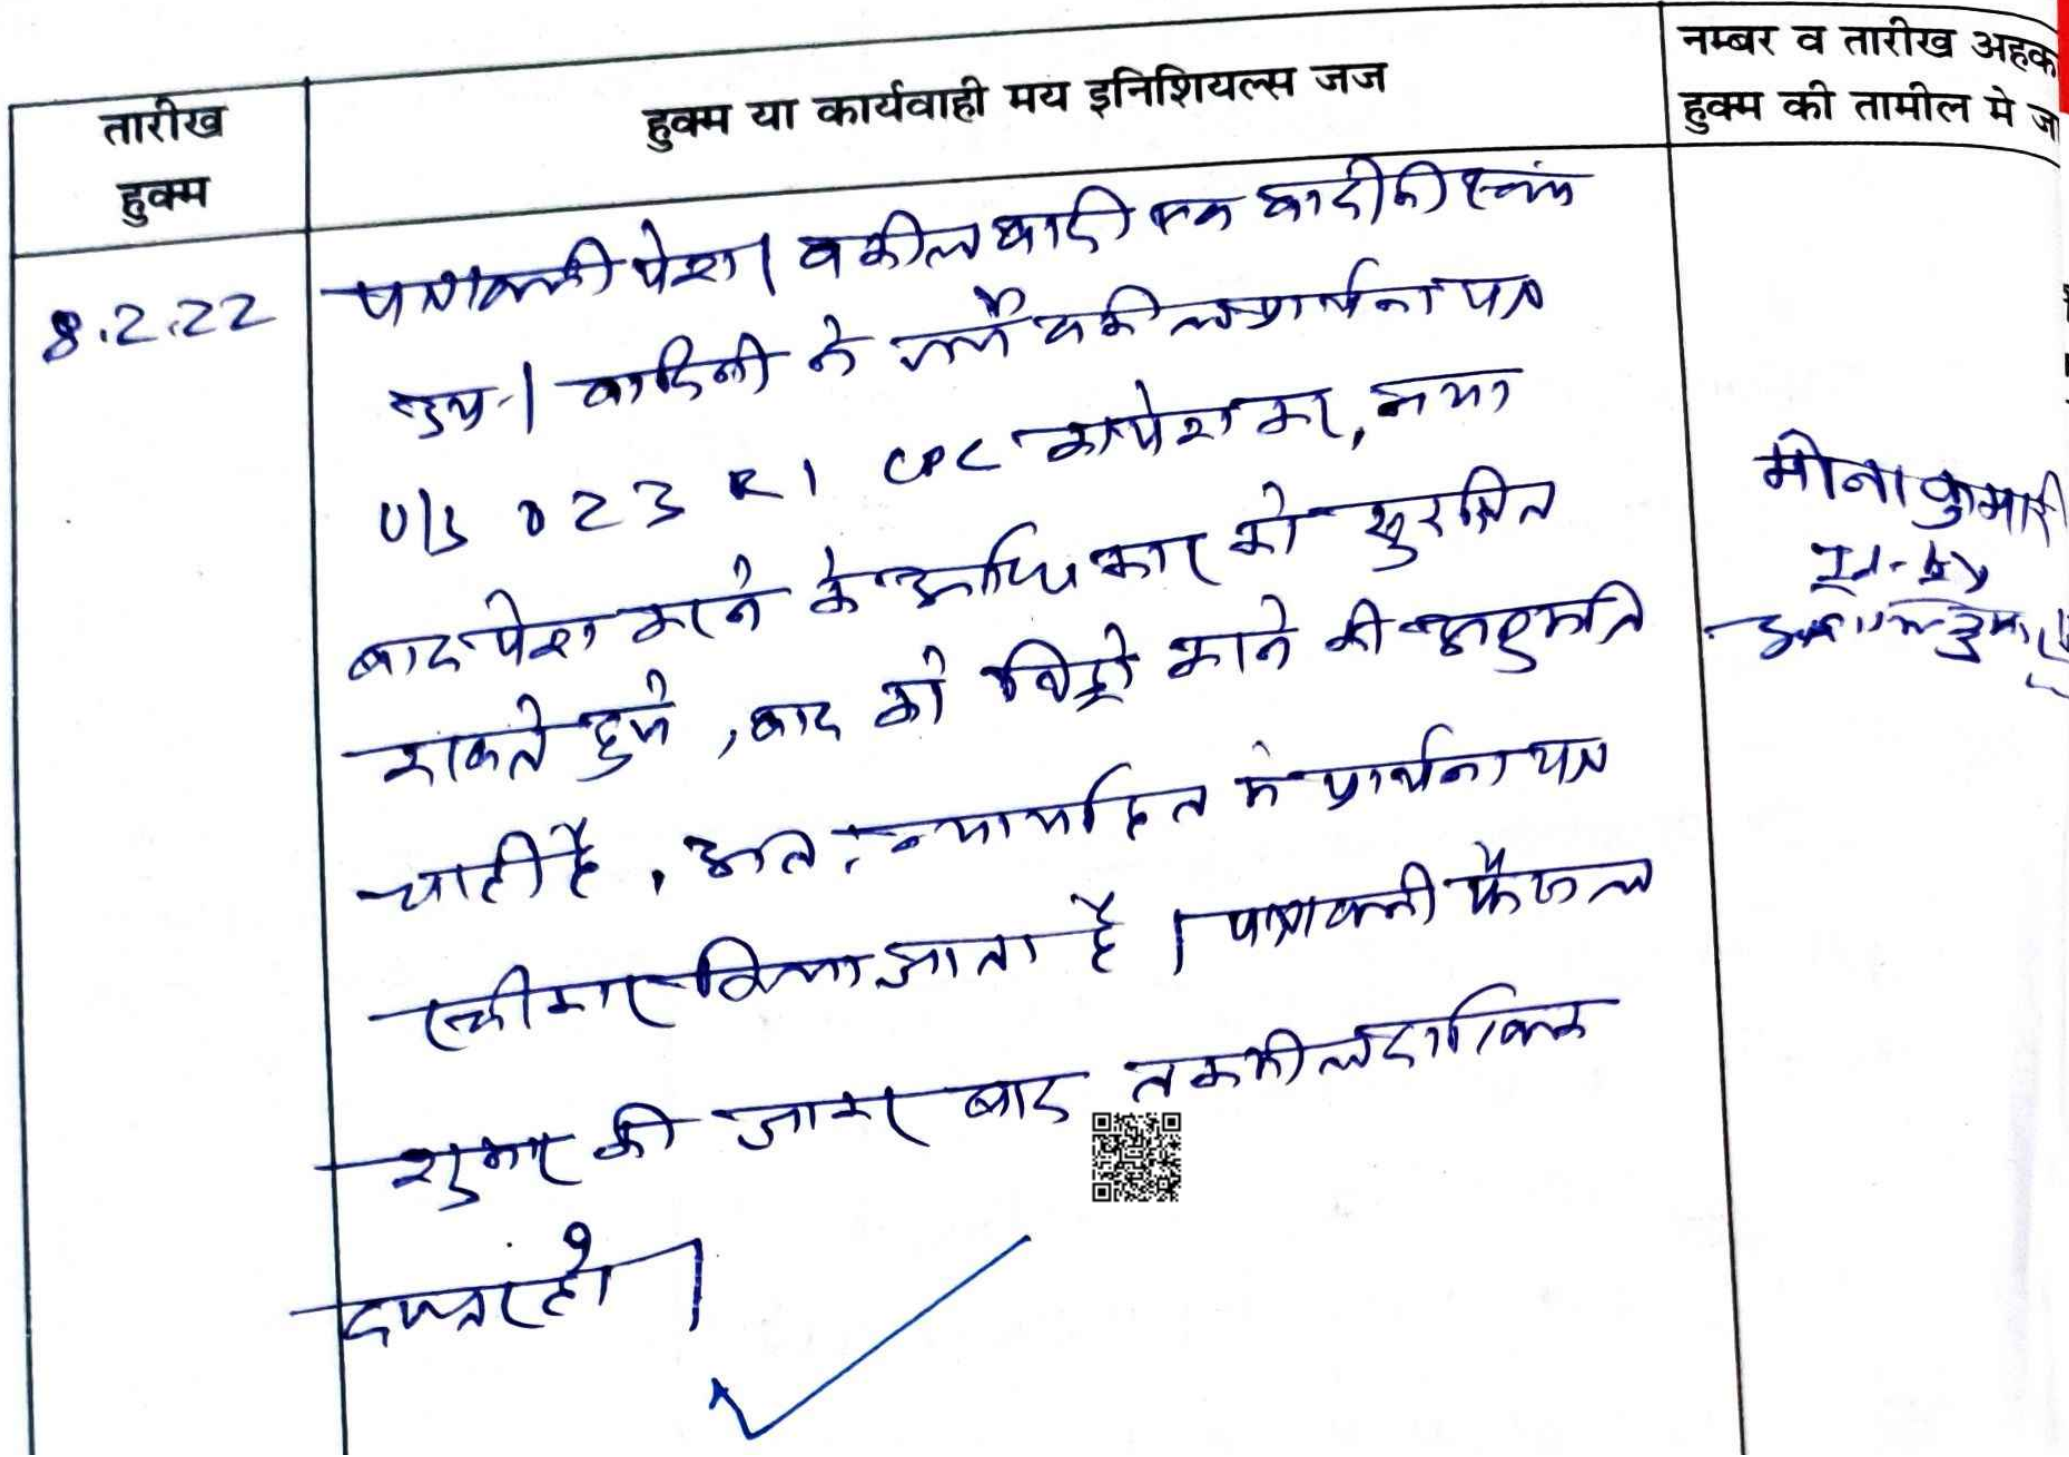 तारीख
हुक्म
हुक्म या कार्यवाही मय इनिशियल्स जज
नम्बर व तारीख अहक
हुक्म की तामील मे ज
8.2.22
पत्रावली पेश। वकील वादी वादीनी स्वंय
उप.। वादिनी ने मय वकील प्रार्थना पत्र
U/s O 23 R 1 CPC का पेश कर, नया
वाद पेश करने के अधिकार को सुरक्षित
रखते हुये, वाद को विड्रो करने की अनुमति
चाही है, अतः न्यायहित मे प्रार्थना पत्र
स्वीकार किया जाता है। पत्रावली फैसल
शुमार की जाकर बाद तकमील दाखिल
दफ्तर हो।
मीना कुमारी